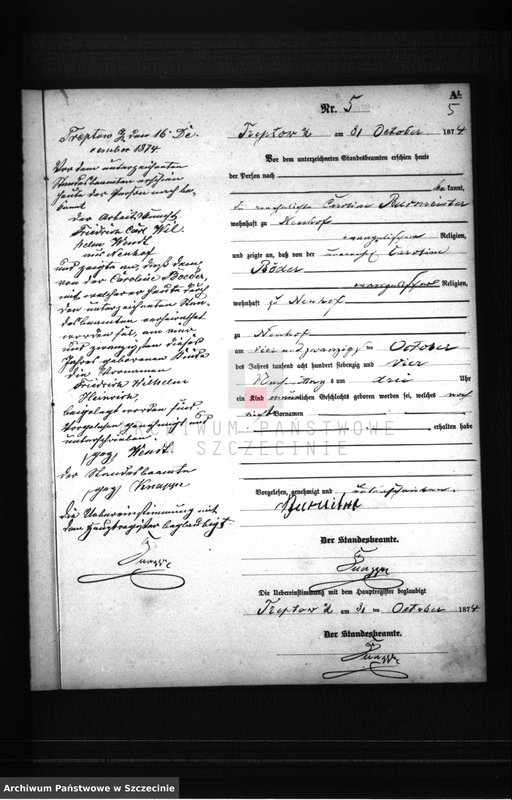 A1.
5
Nr. 5
Treptow a/T am 31 October 1874
Vor dem unterzeichneten Standesbeamten erschien heute
der Person nach
kannt,
verehelichte Caroline Burmeister
wohnhaft zu Neuhof
evangelischer Religion,
und zeigte an, daß von der unverehel. Caroline
Böder
evangelischer Religion,
wohnhaft zu Neuhof
zu Neuhof
am vier und zwanzigsten October
des Jahres tausend acht hundert siebenzig und vier
Nachmittags um drei Uhr
ein Kind männlichen Geschlechts geboren worden sei, welches noch
nicht Vornamen
erhalten habe
Vorgelesen, genehmigt und unterschrieben.
Burmeister
Der Standesbeamte.
Knappe
Die Uebereinstimmung mit dem Hauptregister beglaubigt
Treptow a/T am 31 ten October 1874
Der Standesbeamte.
Knappe
Treptow a/T den 16 De-
cember 1874
Vor dem unterzeichneten
Standesbeamten erschien
heute der Person nach be-
kannt
der Arbeitsknecht
Friedrich Carl Wil-
helm Wendt
aus Neuhof
und zeigte an, daß dem
von der Caroline Boeder,
mit welcher er heute durch
den unterzeichneten Stan-
desbeamten verheirathet
worden sei, am vier
und zwanzigsten dieses
Jahres geborenen Kinde
die Vornamen
Friedrich Wilhelm
Heinrich
beigelegt worden sind
Vorgelesen genehmigt und
unterschrieben
(gez) Wendt
der Standesbeamte
(gez) Knappe
Die Uebereinstimmung mit
dem Hauptregister beglaubigt
Knappe
ARCHIWUM PAŃSTWOWE
W SZCZECINIE
Archiwum Państwowe w Szczecinie